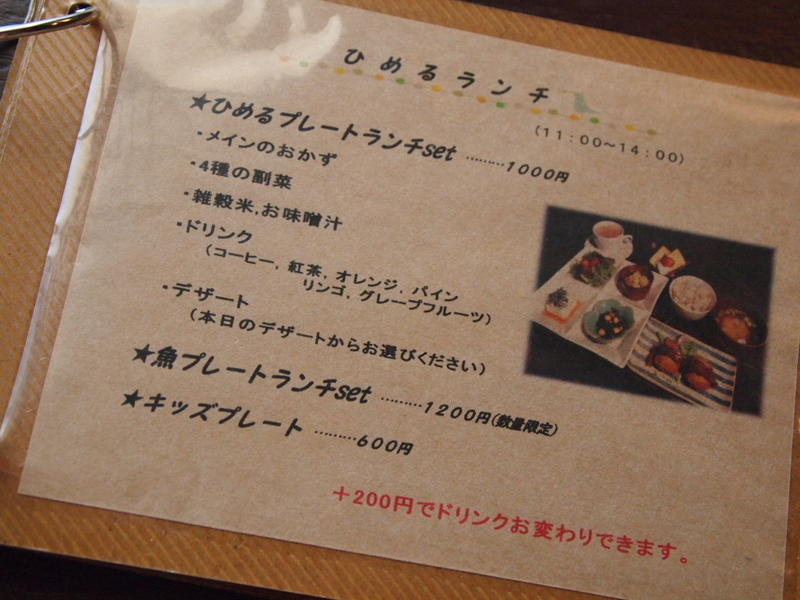 ひめるランチ
(11:00~14:00)
★ひめるプレートランチset ………1000円
・メインのおかず
・4種の副菜
・雑穀米,お味噌汁
・ドリンク
(コーヒー, 紅茶, オレンジ, パイン
リンゴ, グレープフルーツ)
・デザート
(本日のデザートからお選びください)
★魚プレートランチset ………1200円(数量限定)
★キッズプレート ………600円
+200円でドリンクお変わりできます。